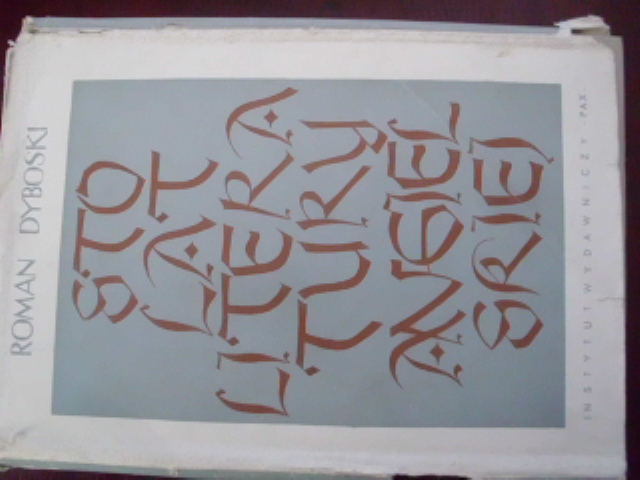 ROMAN DYBOSKI
STO
LAT
LITERA
TURY
ANGIEL
SKIEJ
INSTYTUT WYDAWNICZY · PAX